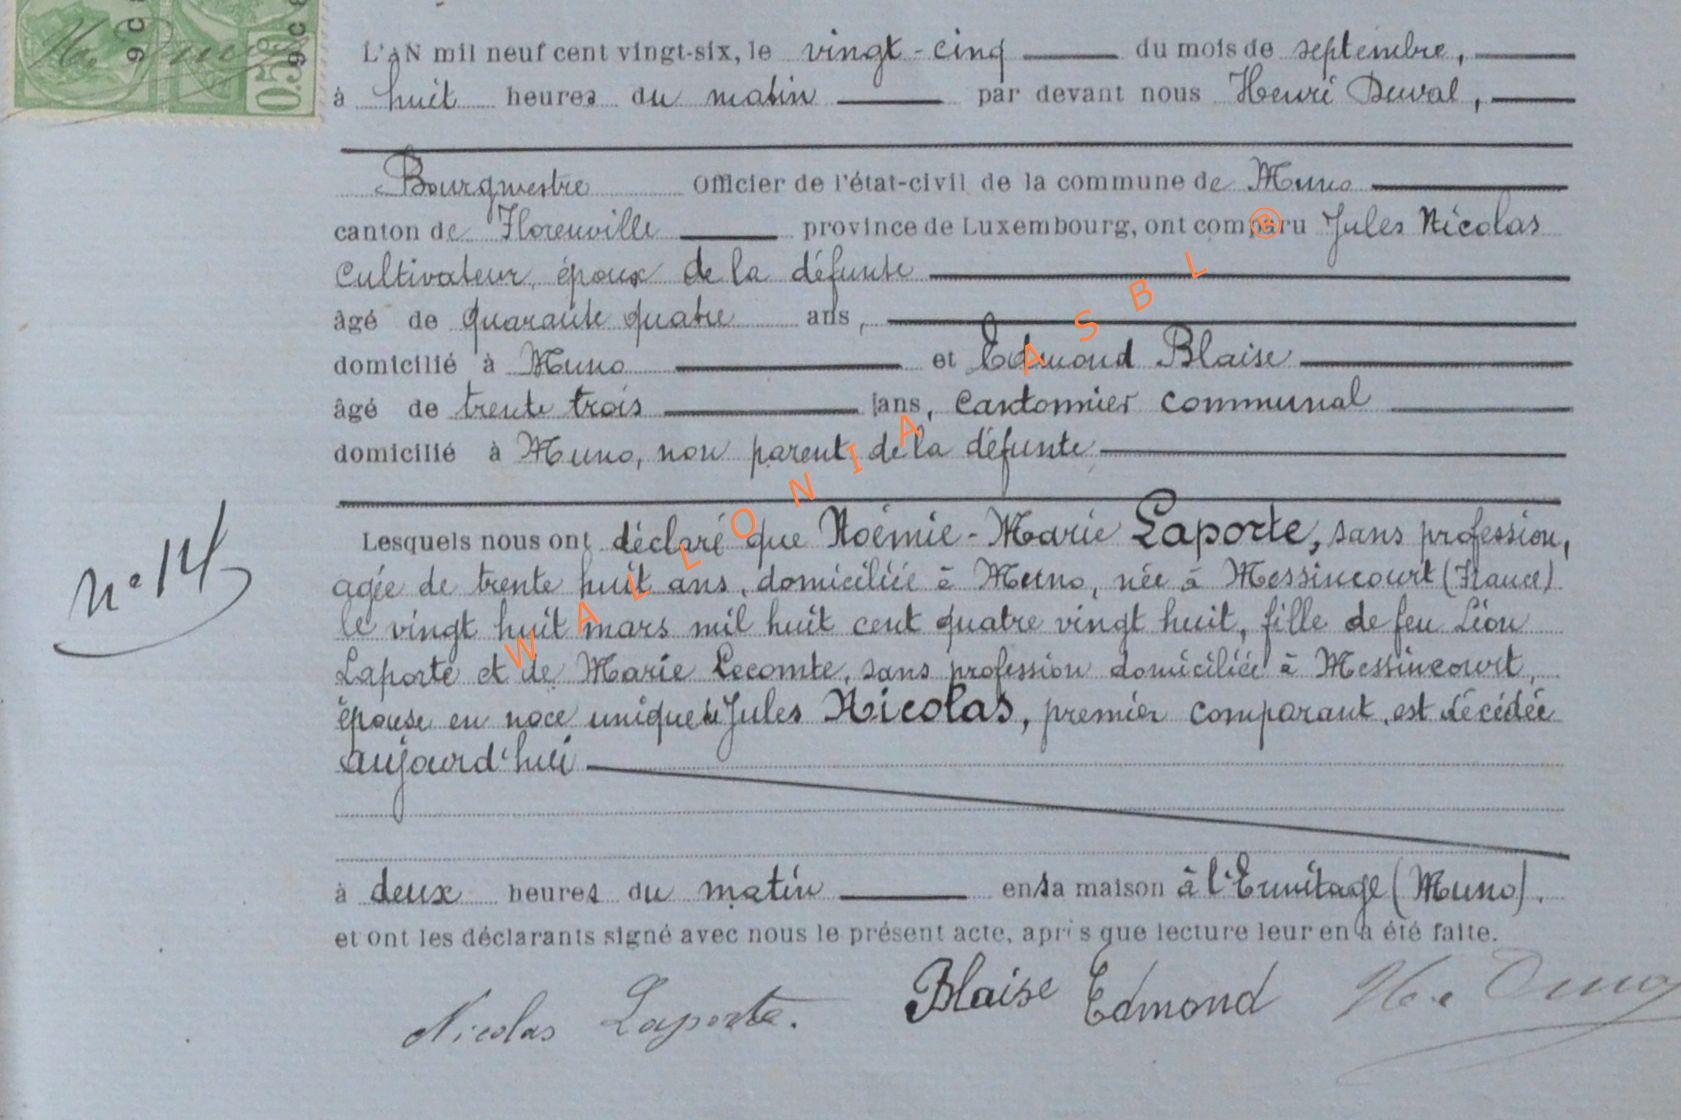 L'AN mil neuf cent vingt-six, le vingt-cinq du mois de septembre,
à huit heures du matin par devant nous Henri Duval,
Bourgmestre Officier de l'état-civil de la commune de Muno
canton de Florenville province de Luxembourg, ont comparu Jules Nicolas
Cultivateur, époux de la défunte
âgé de quarante quatre ans,
domicilié à Muno et Edmond Blaise
âgé de trente trois ans, Cantonnier communal
domicilié à Muno, non parent de la défunte
Lesquels nous ont déclaré que Noémie-Marie Laporte, sans profession,
agée de trente huit ans, domiciliée à Muno, née à Messincourt (France)
le vingt huit mars mil huit cent quatre vingt huit, fille de feu Léon
Laporte et de Marie Lecomte, sans profession domiciliée à Messincourt,
épouse en noce unique de Jules Nicolas, premier comparant, est décédée
aujourd'hui
à deux heures du matin en sa maison à l'Ermitage (Muno).
et ont les déclarants signé avec nous le présent acte, après que lecture leur en a été faite.
Nicolas Laporte. Blaise Edmond
n° 14
0.50
WALLONIA ASBL ®